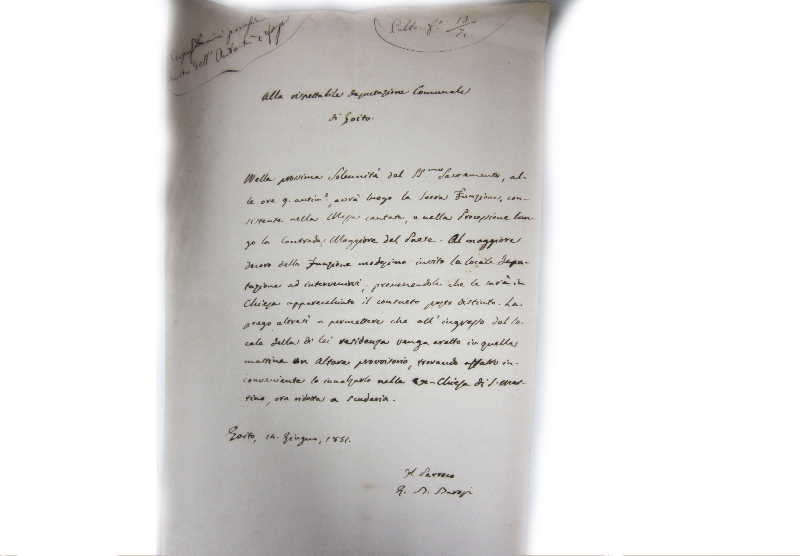 Pubb. f.
Alla rispettabile Deputazione Comunale
di Goito.
Nella prossima Solennità del SS.mo Sacramento, al-
le ore 9. antim.e, avrà luogo la Sacra Funzione, con-
sistente nella Messa cantata, e nella Processione lun-
go la Contrada Maggiore del Paese. Al maggiore
decoro della Funzione medesima invito la locale Depu-
tazione ad intervenirvi, prevenendola che le sarà in
Chiesa apparecchiato il consueto posto distinto. La
prego altresì a permettere che all'ingresso del lo-
cale della di lei residenza venga eretto in quella
mattina un Altare provvisorio, trovando affatto in-
conveniente lo innalzarlo nella ex-Chiesa di S. Mar-
tino, ora ridotta a scuderia.
Goito, 14. Giugno, 1851.
Il Parroco